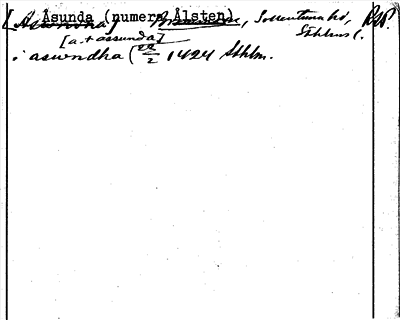 [Åsunda (numera Ålsten), Sollentuna hd, RSP.
Sthlms l.
[a.t assunda]
i aswndha (22/2 1424 Sthlm.